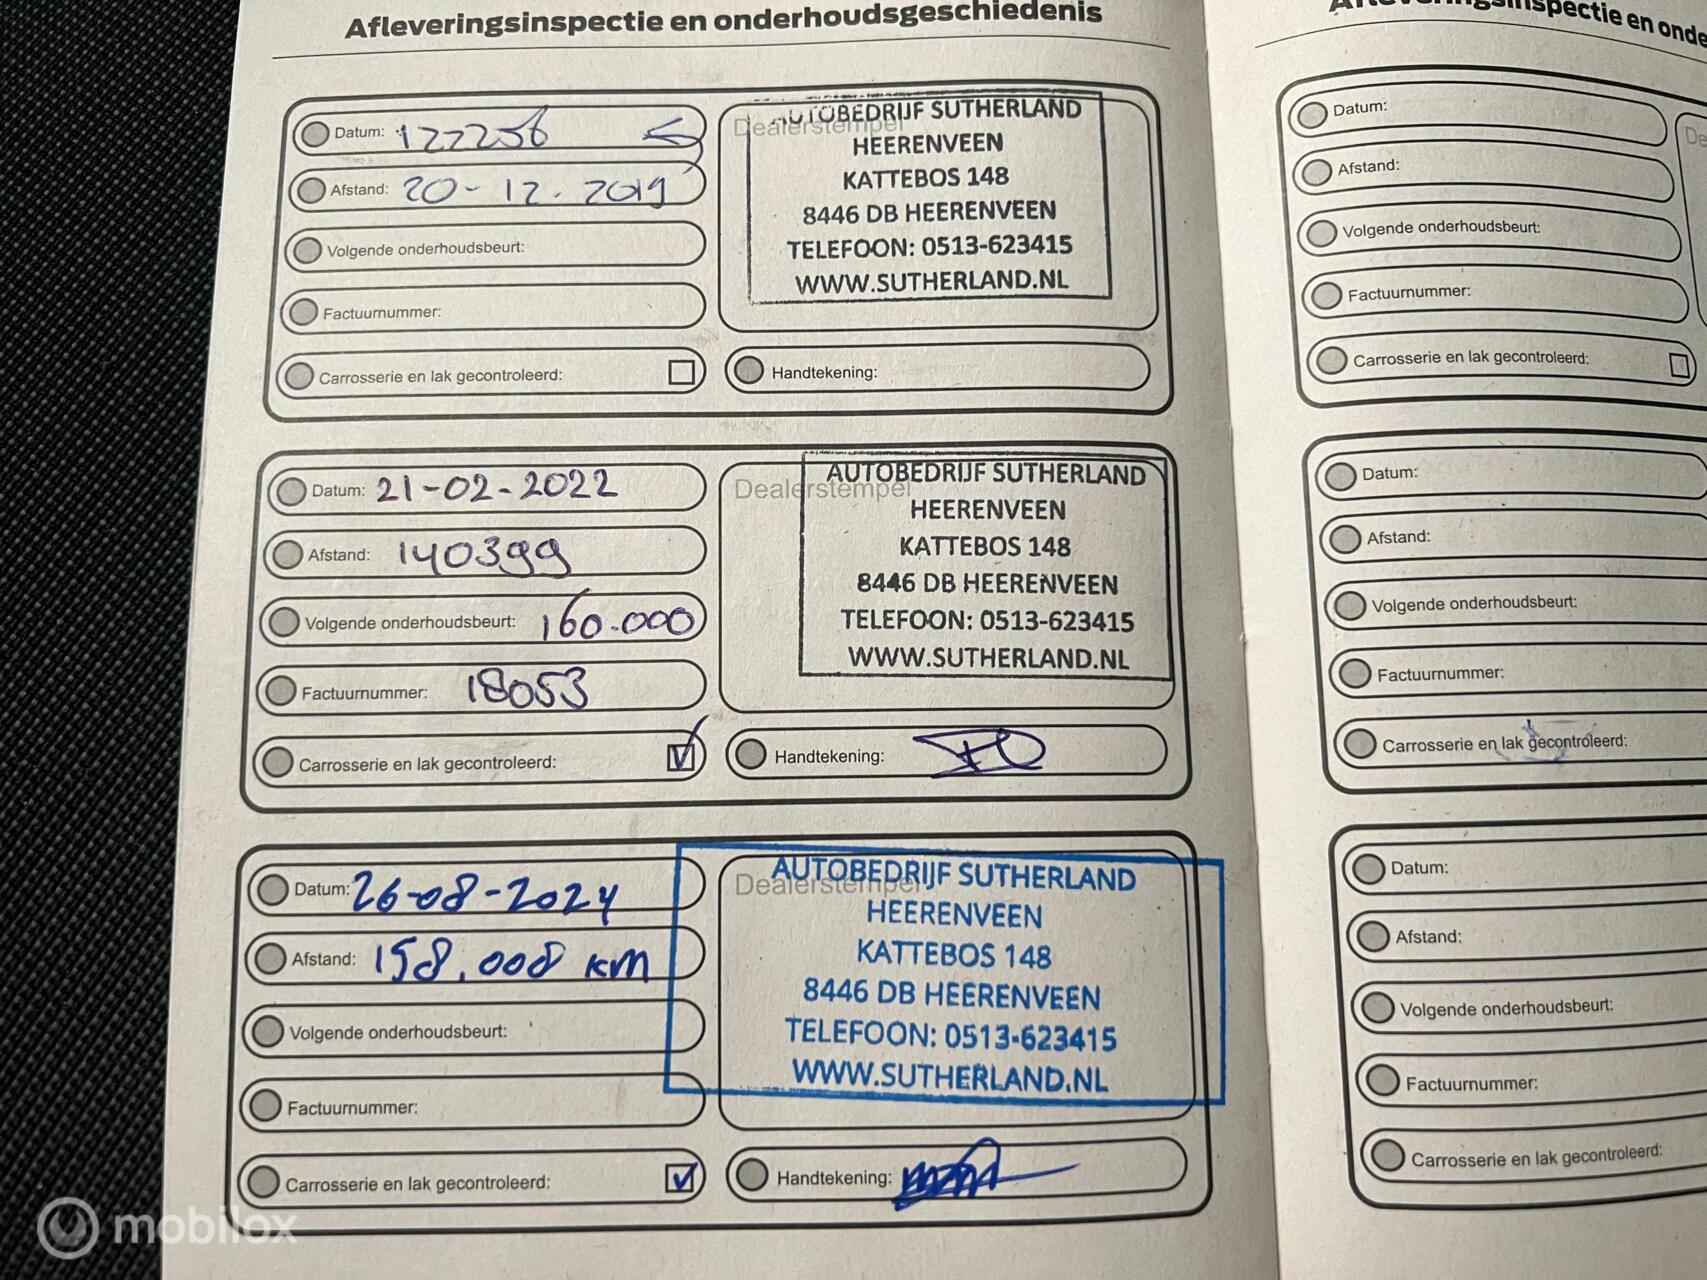 Afleveringsinspectie en onderhoudsgeschiedenis
Datum: 122256
Afstand: 20-12-2019
Volgende onderhoudsbeurt:
Factuurnummer:
Carrosserie en lak gecontroleerd:
Dealerstempel
AUTOBEDRIJF SUTHERLAND
HEERENVEEN
KATTEBOS 148
8446 DB HEERENVEEN
TELEFOON: 0513-623415
WWW.SUTHERLAND.NL
Handtekening:
Datum: 21-02-2022
Afstand: 140399
Volgende onderhoudsbeurt: 160.000
Factuurnummer: 18053
Carrosserie en lak gecontroleerd:
Dealerstempel
AUTOBEDRIJF SUTHERLAND
HEERENVEEN
KATTEBOS 148
8446 DB HEERENVEEN
TELEFOON: 0513-623415
WWW.SUTHERLAND.NL
Handtekening:
Datum: 26-08-2024
Afstand: 158.008 km
Volgende onderhoudsbeurt:
Factuurnummer:
Carrosserie en lak gecontroleerd:
Dealerstempel
AUTOBEDRIJF SUTHERLAND
HEERENVEEN
KATTEBOS 148
8446 DB HEERENVEEN
TELEFOON: 0513-623415
WWW.SUTHERLAND.NL
Handtekening:
en onde
Datum:
Afstand:
Volgende onderhoudsbeurt:
Factuurnummer:
Carrosserie en lak gecontroleerd:
Datum:
Afstand:
Volgende onderhoudsbeurt:
Factuurnummer:
Carrosserie en lak gecontroleerd:
Datum:
Afstand:
Volgende onderhoudsbeurt:
Factuurnummer:
Carrosserie en lak gecontroleerd:
mobilox